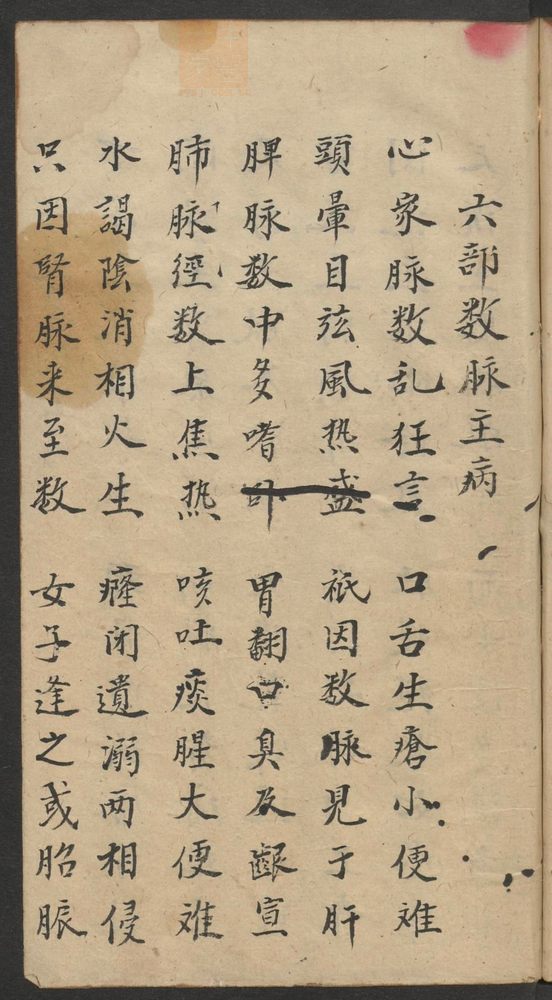 六部数脉主病
心家脉数乱狂言 口舌生瘡小便难
頭暈目弦風热盛 祇因数脉見于肝
脾脉数中多嗜卧 胃翻口臭及齦宣
肺脉徑数上焦热 咳吐痰腥大便难
水謁陰消相火生 癃闭遺溺两相侵
只因腎脉来至数 女子逢之或胎脤